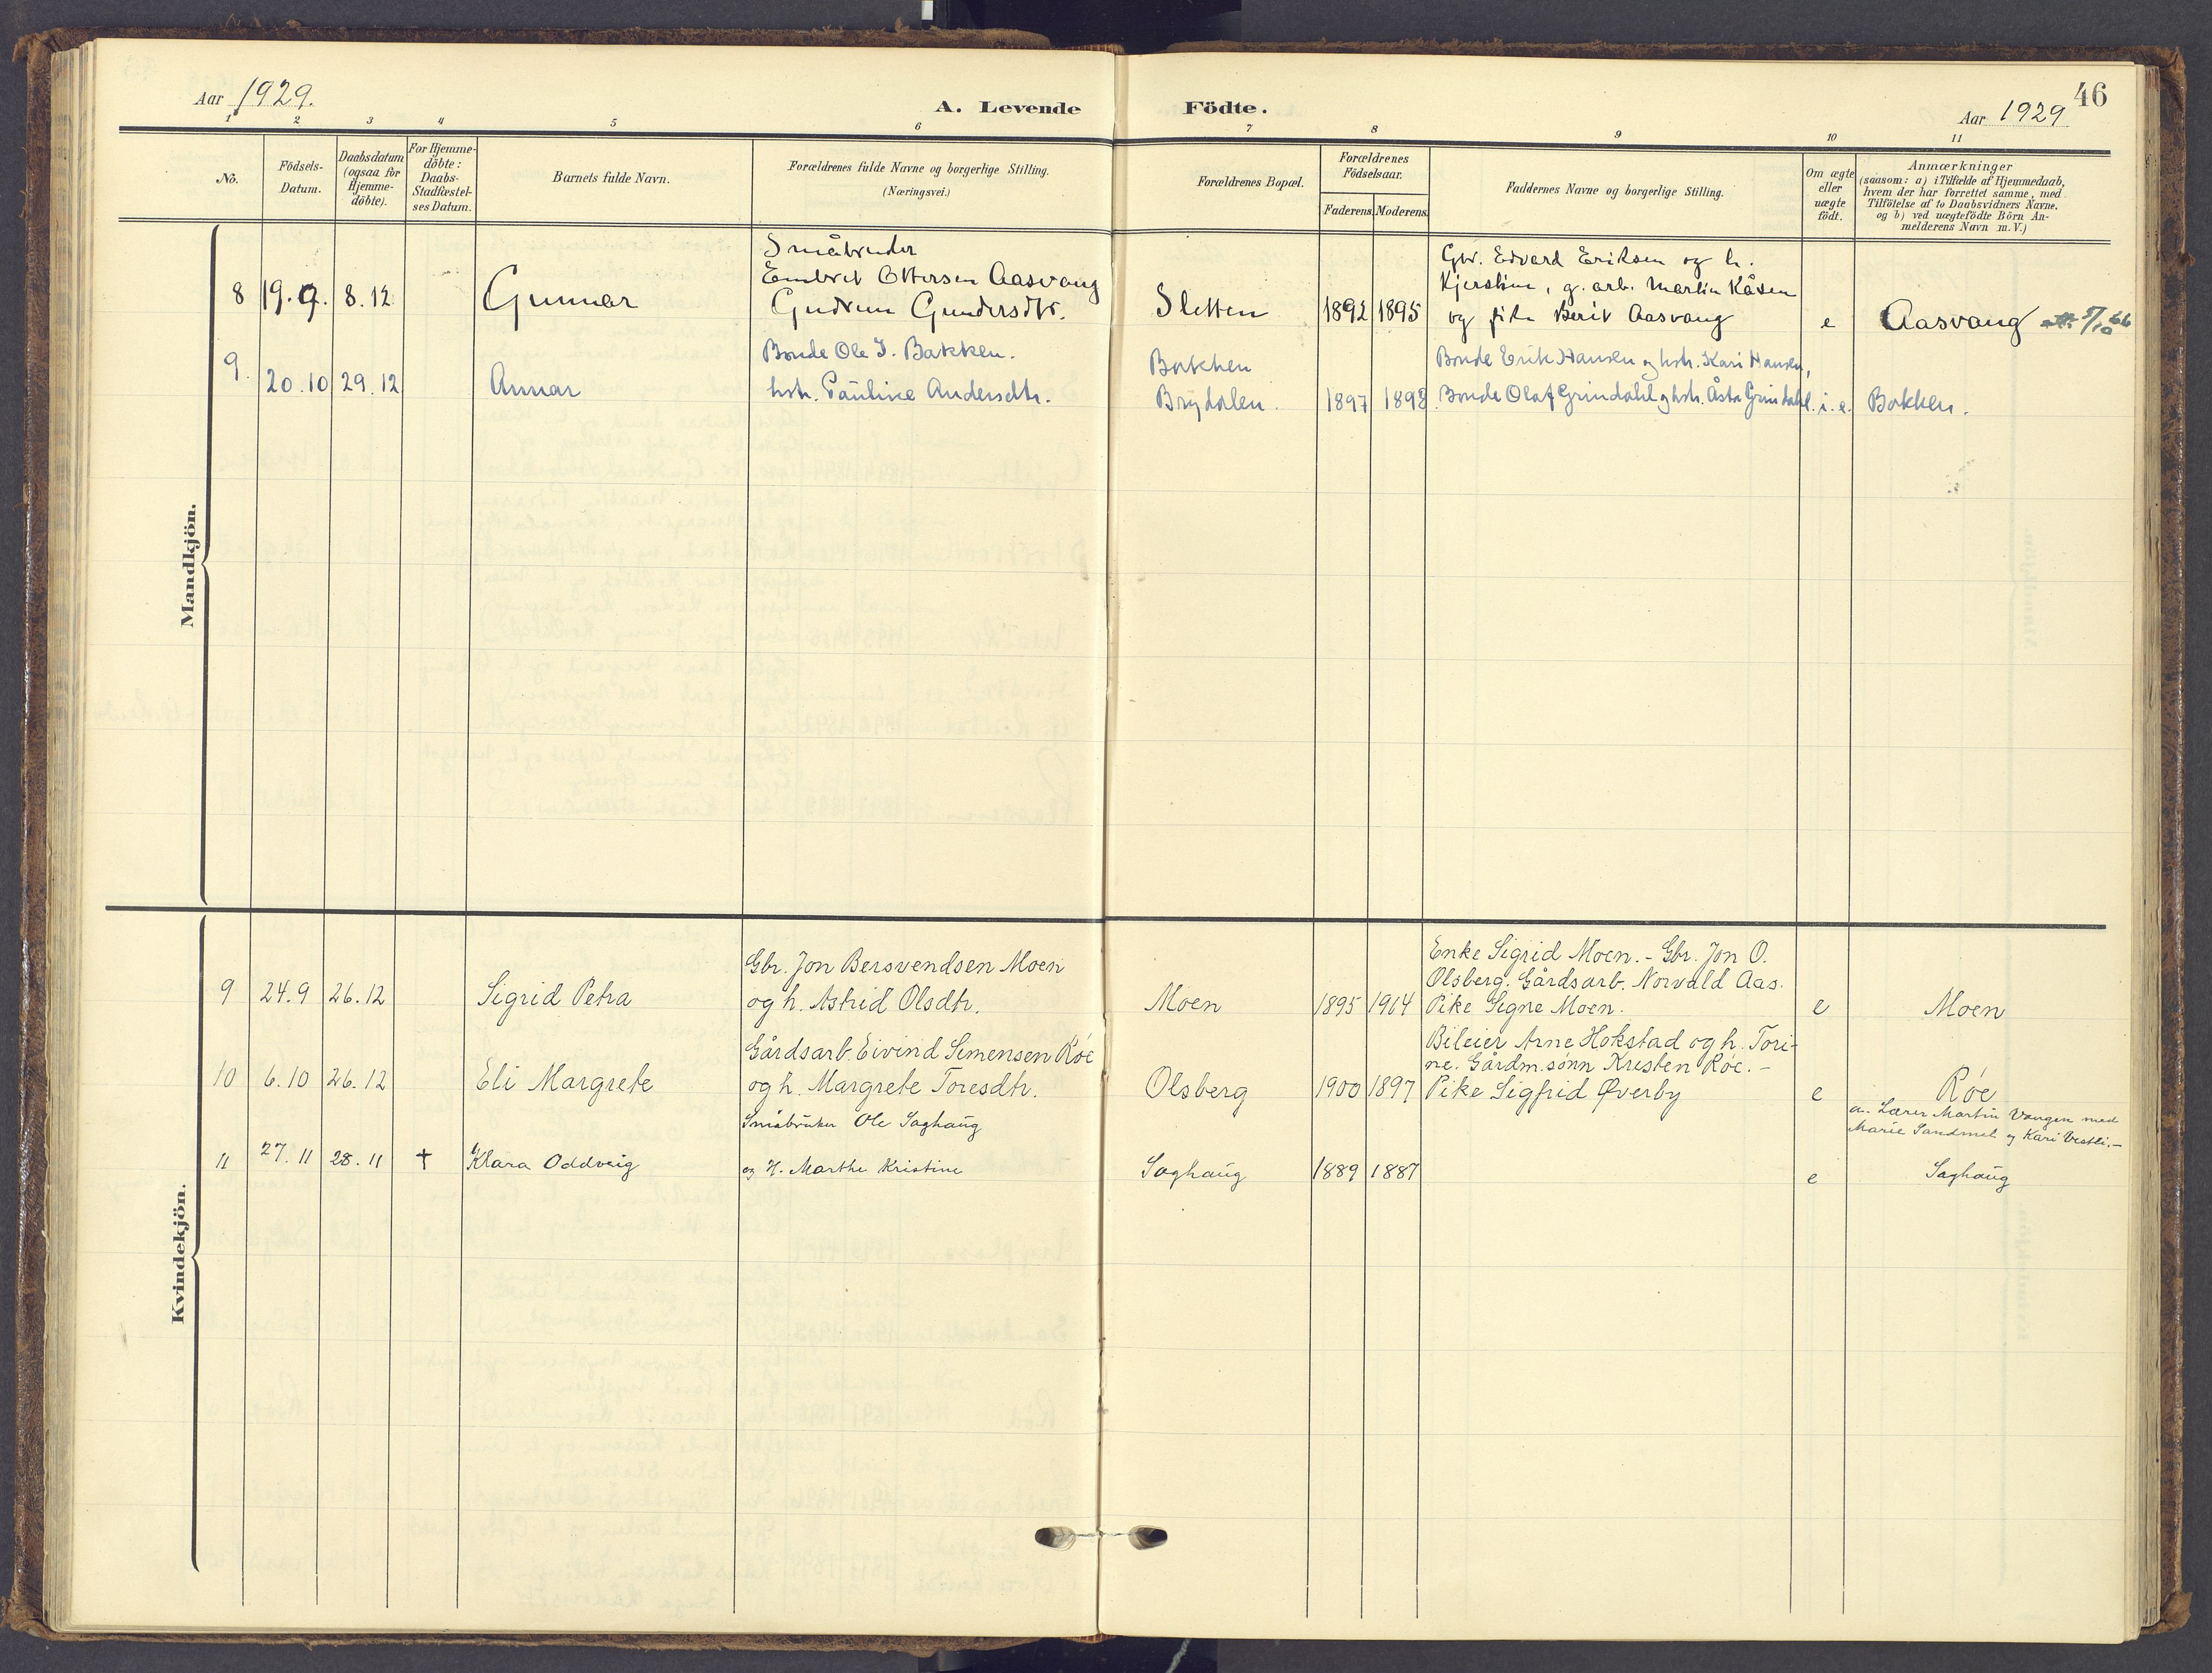 46
Aar 1929.
A. Levende Födte.
Aar 1929
1 2 3 4 5 6 7 8 9 10 11
No.
Födsels-
Datum.
Daabsdatum
(ogsaa for
Hjemme-
döbte).
For Hjemme-
döbte:
Daabs-
Stadfæstel-
ses Datum.
Barnets fulde Navn.
Forældrenes fulde Navne og borgerlige Stilling.
(Næringsvei.)
Forældrenes Bopæl.
Forældrenes
Födselsaar.
Faderens. Moderens.
Faddernes Navne og borgerlige Stilling.
Om ægte
eller
uægte
födt.
Anmærkninger
(saasom: a) i Tilfælde af Hjemmedaab,
hvem der har forrettet samme, med
Tilföielse af to Daabsvidners Navne.
og b) ved uægtefödte Börn An-
melderens Navn m. V.)
Mandkjön.
Småbruker
Embret Ottersen Aasvang
8 19.9. 8.12 Gunnar Gudrun Gundersdtr.
Sletten 1892 1895
Gbr. Edvard Eriksen og h.
Kjerstine, g. arb. Martin Kåsen
og pike Berit Aasvang
e Aasvang att. 5/10 66
Bonde Ole J. Bakken.
9. 20.10 29.12 Annar hstr. Pauline Andersdtr.
Bakken
Brydalen. 1897 1898
Bonde Erik Hansen og hstr. Kari Hansen,
Bonde Olaf Grindahl og hstr. Åsta Grindahl.
i. e. Bakken.
Kvindekjön.
Gbr. Jon Bersvendsen Moen
9 24.9 26.12 Sigrid Petra og h. Astrid Olsdtr.
Moen 1895 1904
Enke Sigrid Moen. - Gbr. Jon O.
Olsberg. Gårdsarb. Norvald Aas.
Pike Signe Moen.
e Moen
Gårdsarb. Eivind Simensen Røe
10 6.10 26.12 Eli Margrete og h. Margrete Toresdtr.
Olsberg 1900 1897
Bileier Arne Hokstad og h. Tori-
ne. Gårdm.sønn Kristen Røe. -
Pike Sigfrid Øverby
e Røe
Småbruker Ole Saghaug
11 27.11 28.11 † Klara Oddveig og H. Marthe Kristine
Saghaug 1889 1887
e
a. Lærer Martin Vangen med
Marie Sandmel og Kari Vestli.-
Saghaug